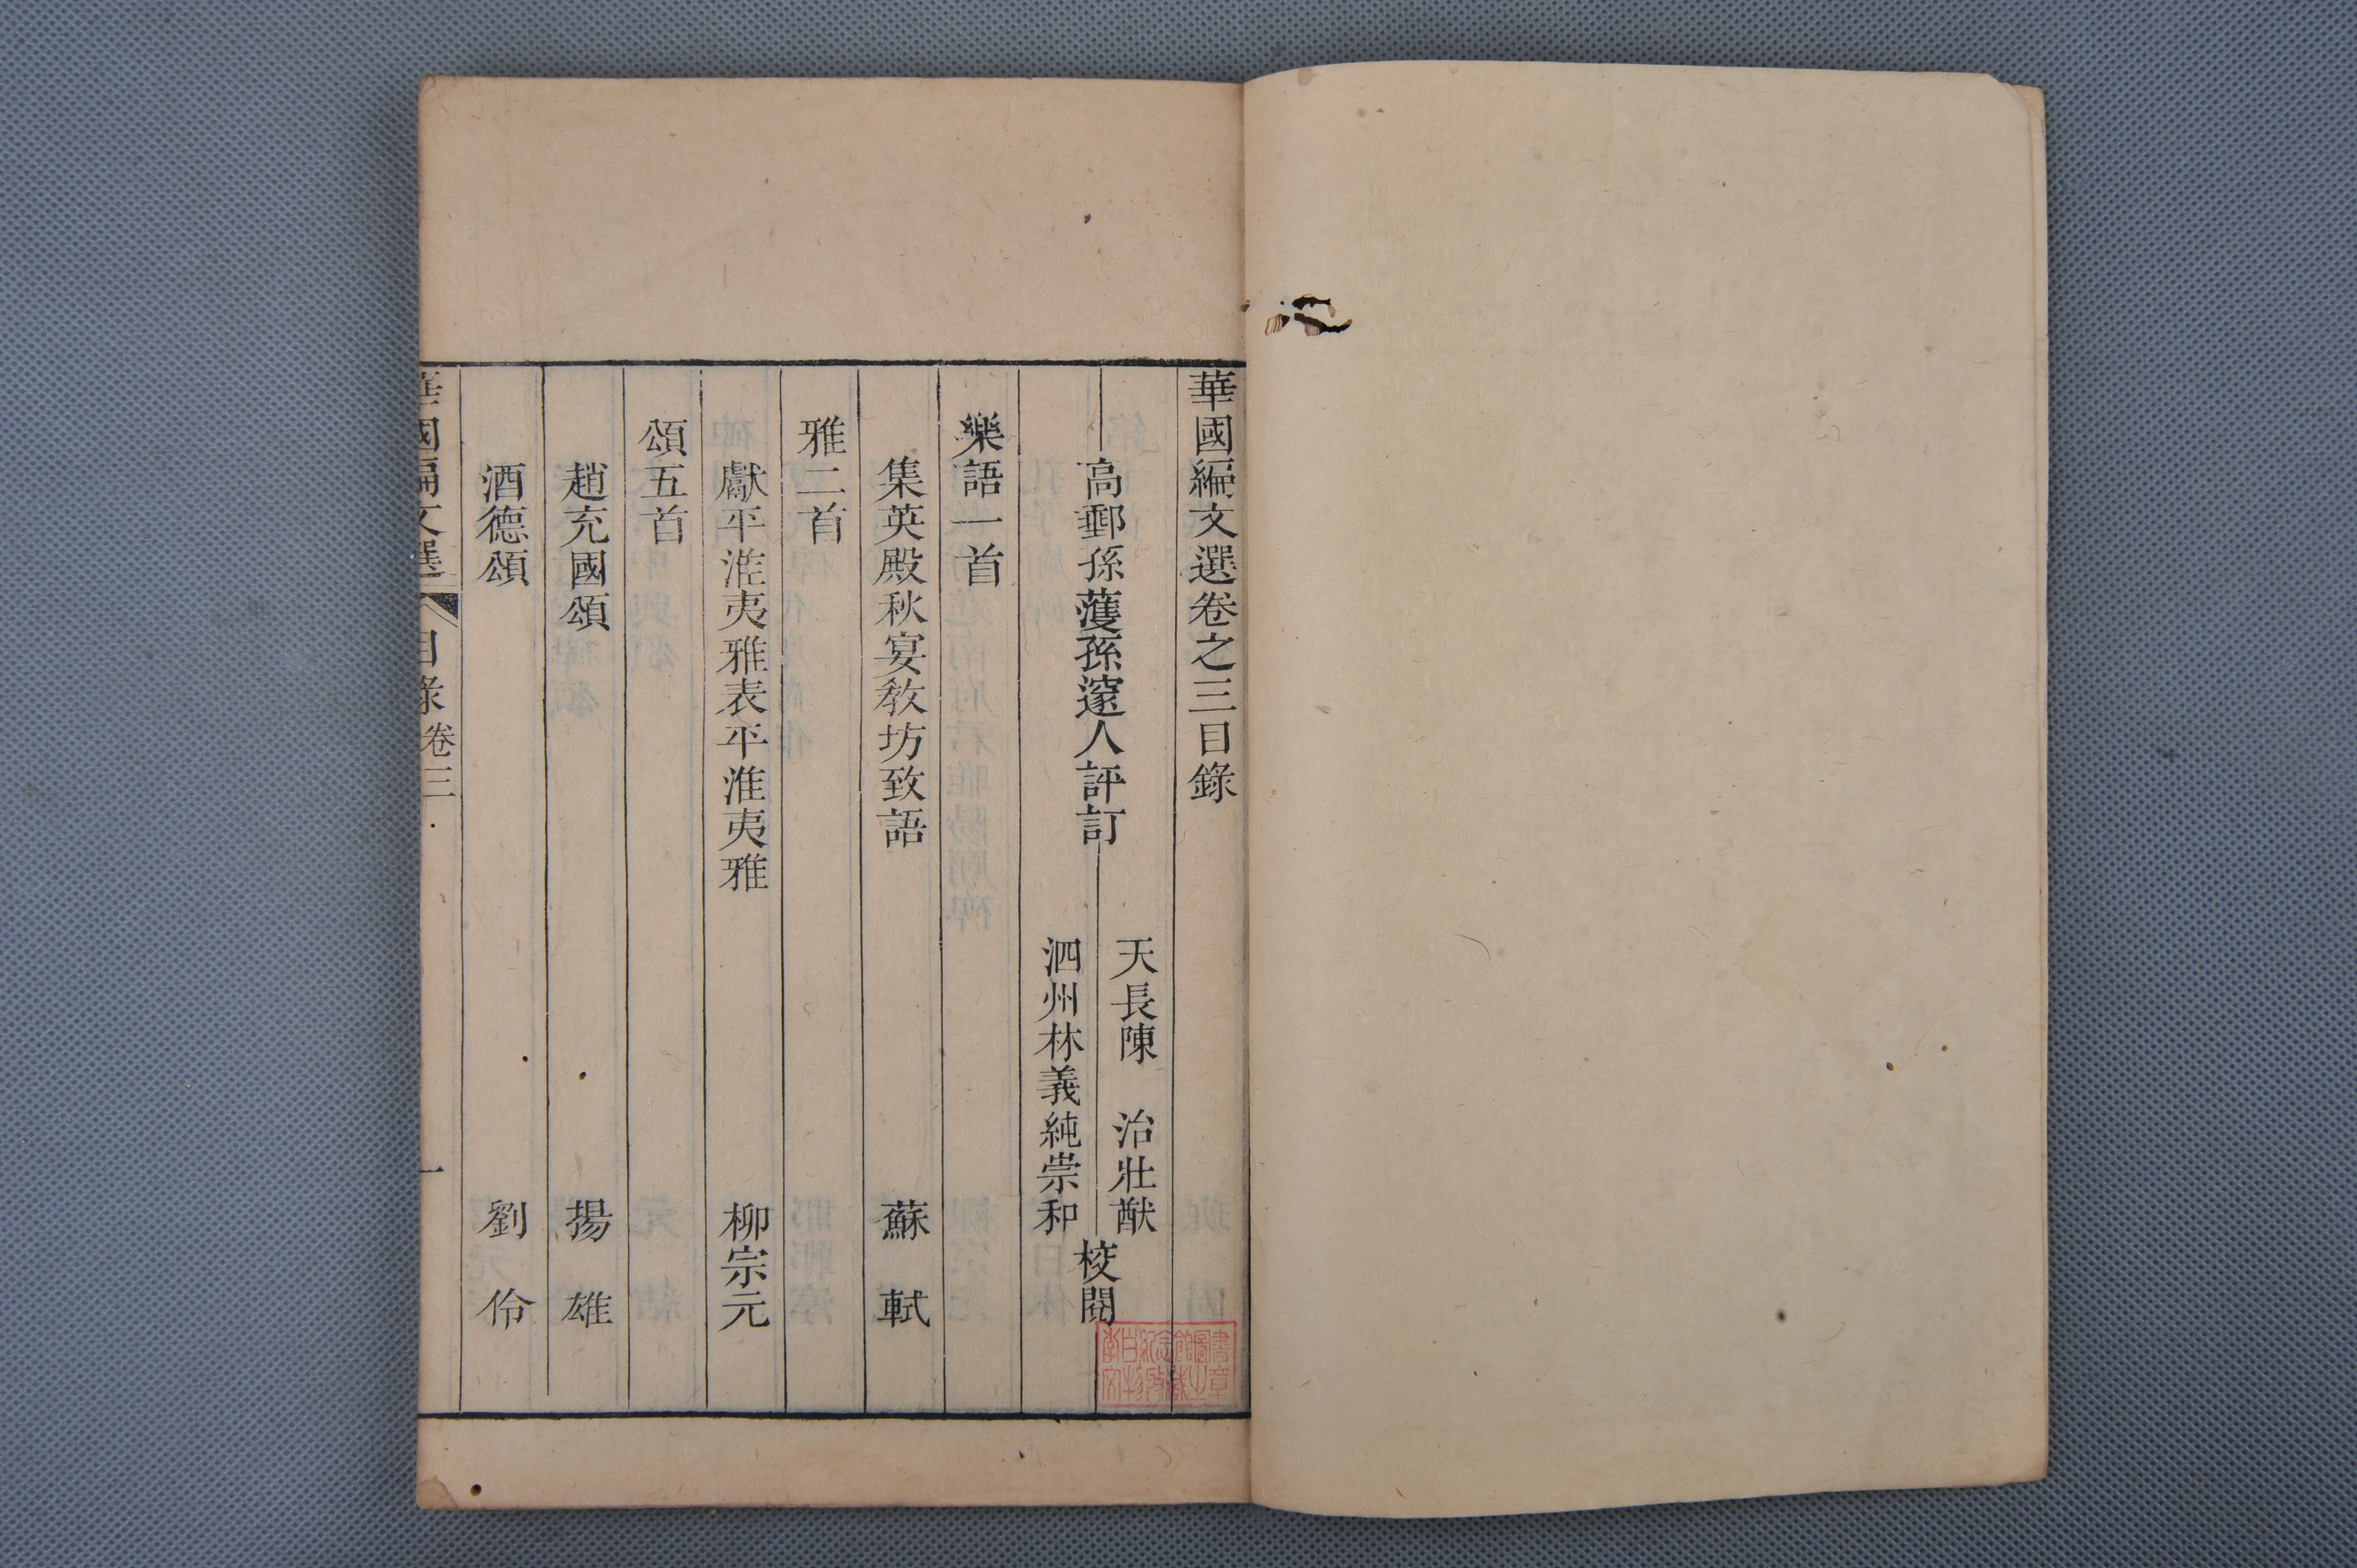 華國編文選卷之三目錄
高郵孫濩孫邃人評訂
天長陳　治壯猷
泗州林義純崇和
校閱
樂語一首
集英殿秋宴教坊致語　蘇　軾
雅二首
獻平淮夷雅表平淮夷雅　柳宗元
頌五首
趙充國頌　揚　雄
酒德頌　劉　伶
華國編文選　目錄　卷三　一
李白紀念館圖書
文物收藏之章